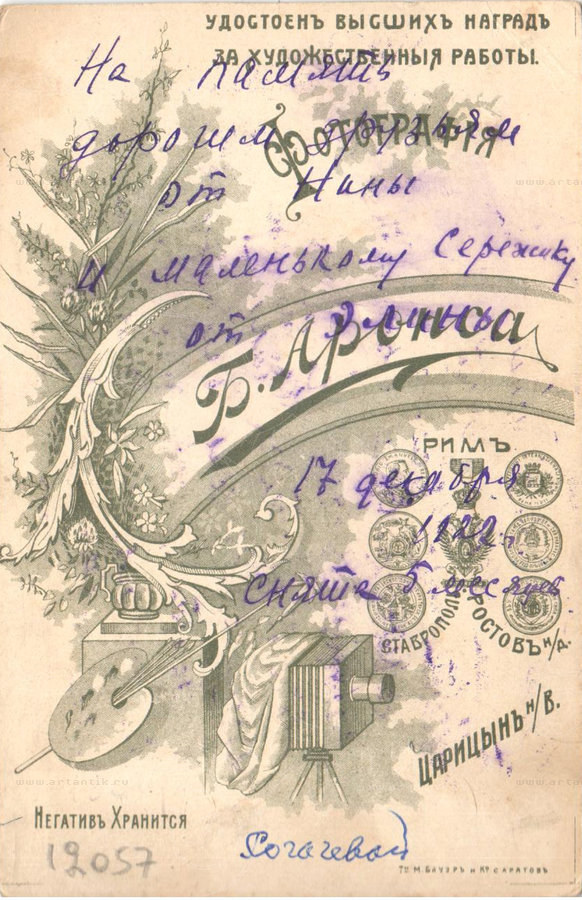 УДОСТОЕНЪ ВЫСШИХЪ НАГРАДЪ
ЗА ХУДОЖЕСТВЕННЫЯ РАБОТЫ.
На память
дорогим друзьям
ФОТОГРАФІЯ
от Нины
и маленькому Сережику
от
Б. Аронса
РИМЪ
17 декабря
1922г.
снята 5 месяцев
СТАВРОПОЛЬ РОСТОВЪ н/Д.
ЦАРИЦЫНЪ н/В.
НЕГАТИВЪ ХРАНИТСЯ
12057
Согачевой
Т-во М. БАУЭРЪ и Ко. САРАТОВЪ
www.artantik.ru